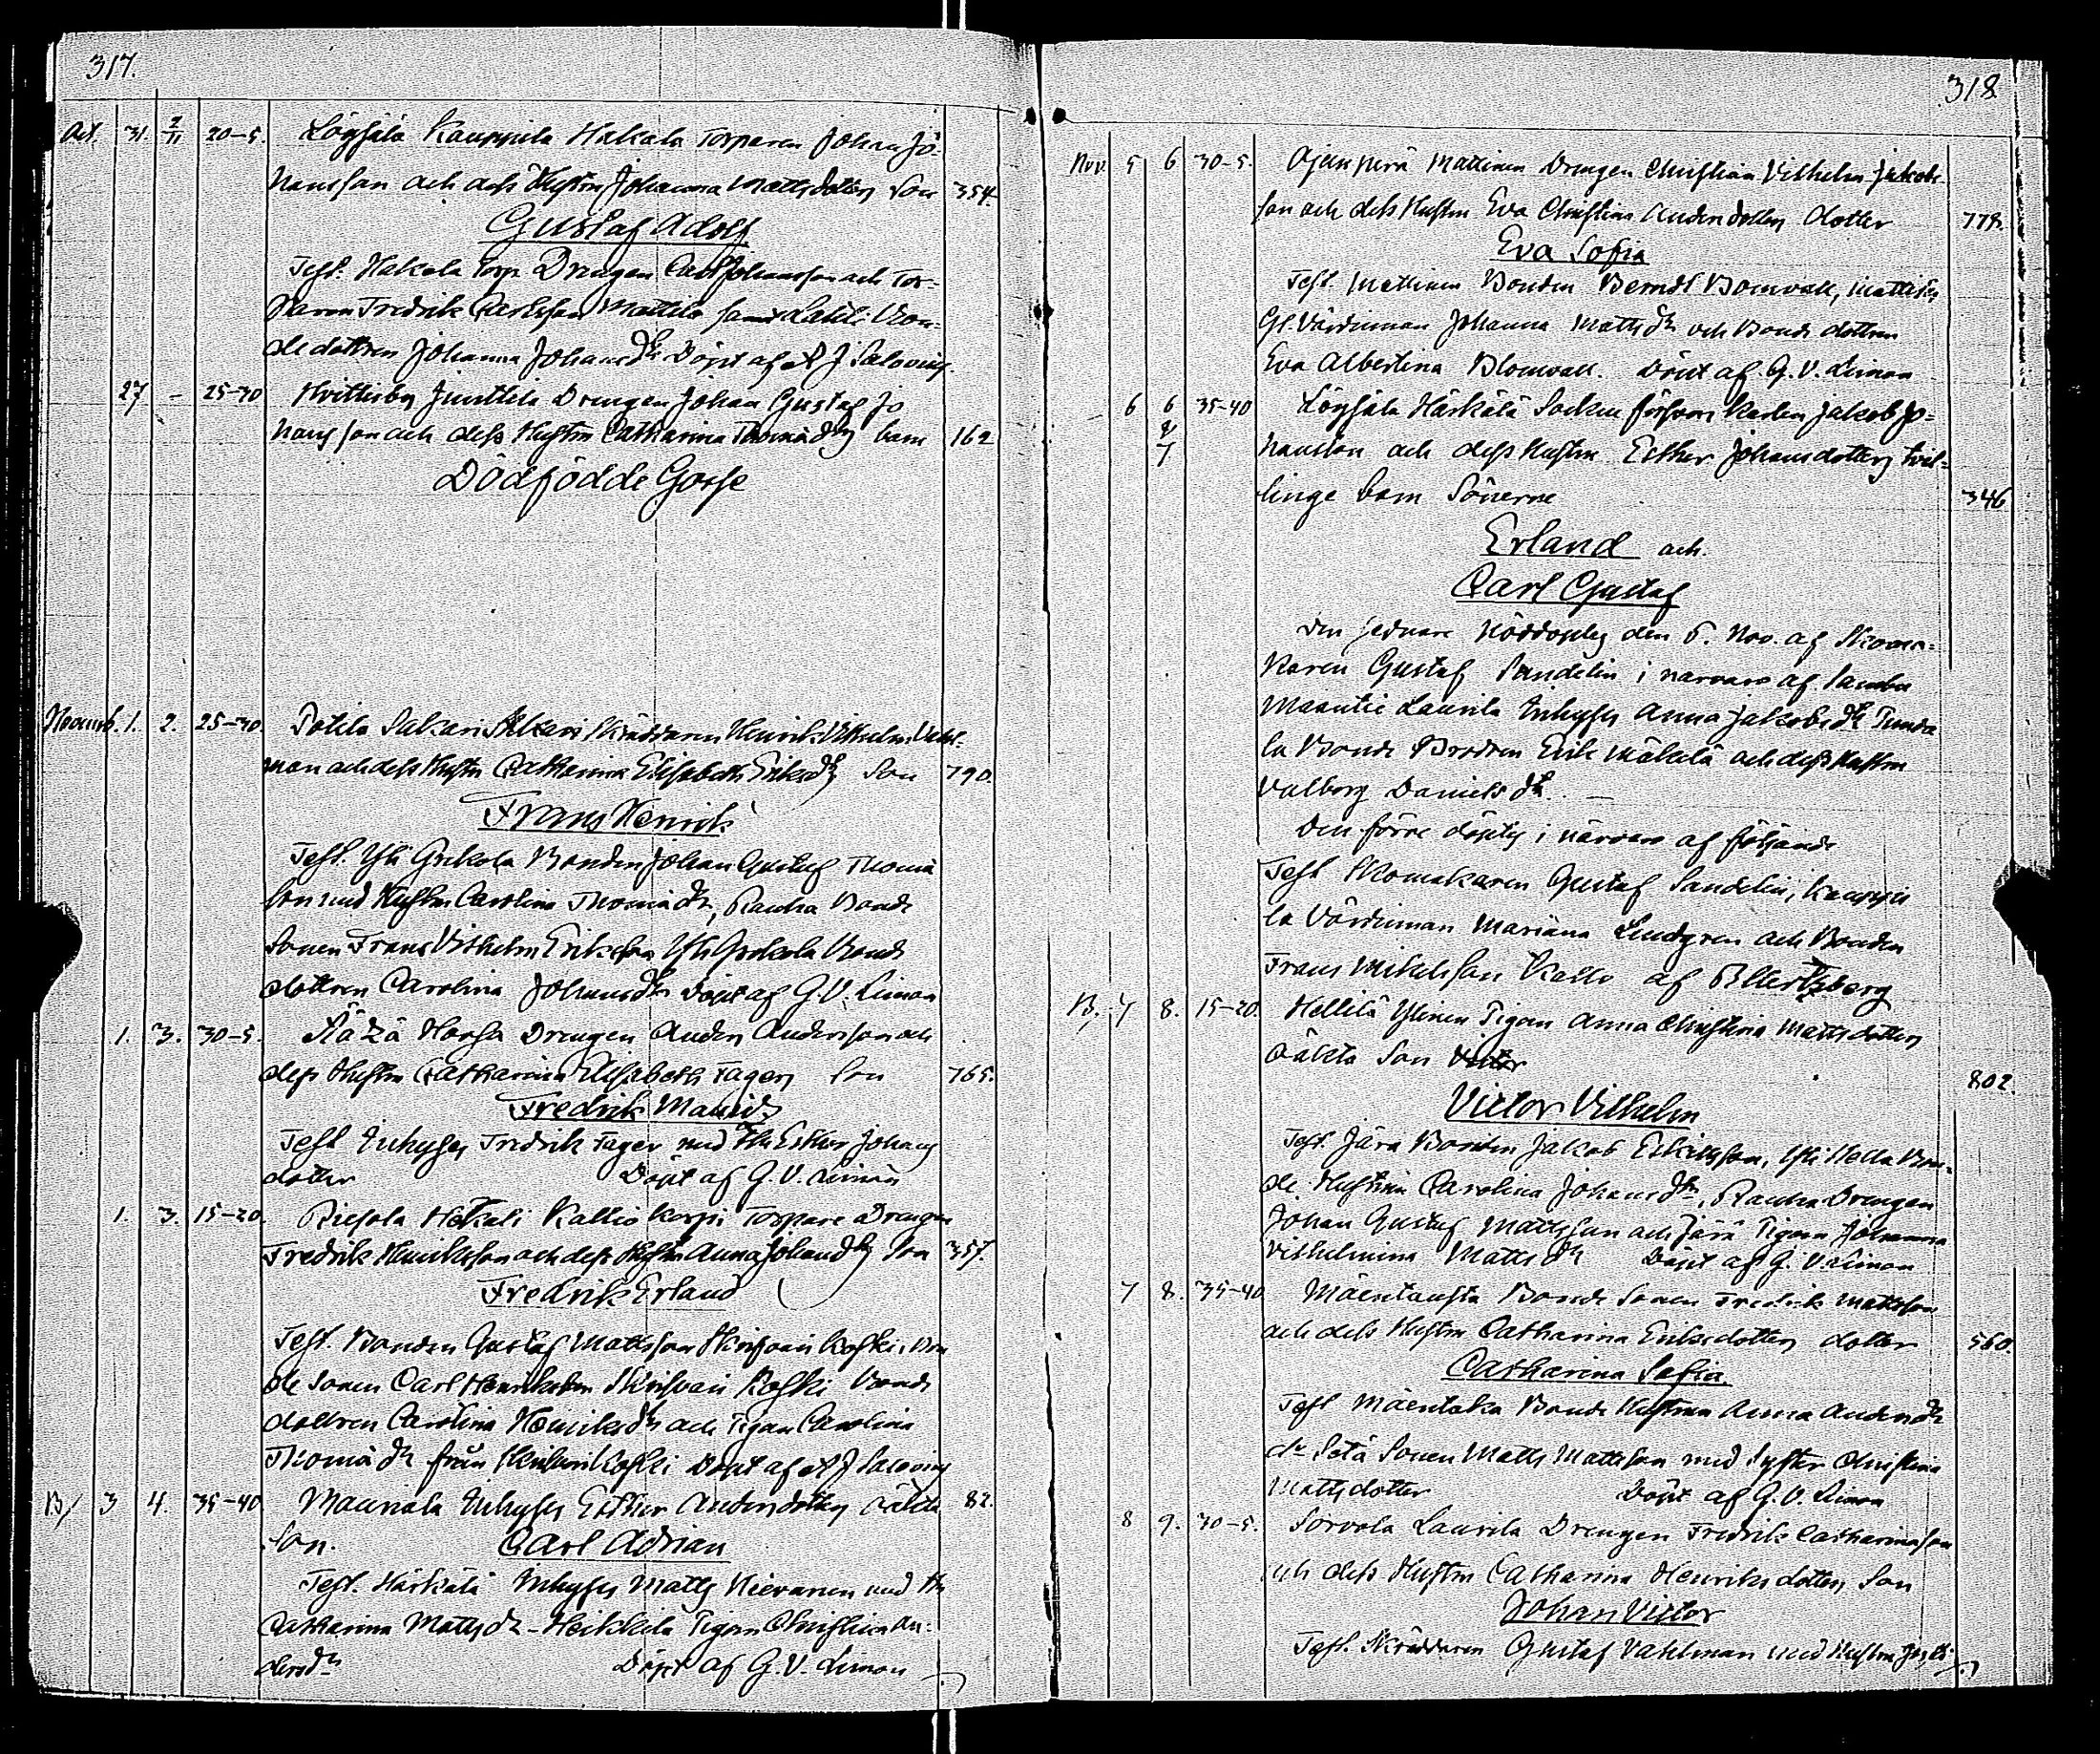 317.
Oct. 31. 2/11 20-5. Löysälä Kauppila Hakala Torparen Johan Jo-
hansson och dess Hustru Johanna Mattsdotters Son 354.
Gustaf Adolf
Test. Hakala Torp. Drengen Carl Johansson och Tor-
paren Fredrik Carlsson Mattila samt Lahti Bon-
dedottren Johanna Johansdr Döpt af A J Salovius.
27 - 25-30 Hvittisby Junttila Drengen Johan Gustaf Jo
hansson och dess Hustru Catharina Thomädrs barn 162
Dödfödde Gosse
Novemb. 1. 2. 25-30. Sakari Skräddaren Henrik Vilhelm
man och dess Hustru Catharina Elisabeth Eriksdrs Son 790.
Frans Henrik
Test. Yli Bonden Johan Gustaf Thomä
son med Hustru Carolina Thomädr, Rauha Bonde
Sonen Frans Vilhelm Eriksson Yli Bonde
dottren Carolina Johansdr Döpt af G. V. Limon
1. 3. 30-5. Hossa Drengen Anders Andersson och
dess Hustru Catharina Elisabeth Tagers Son 765.
Fredrik Mauritz
Test Inhyses Fredrik Tager med Hu Esther Johans
dotter Döpt af G. V. Limon
1. 3. 15-20. Kallio korpi Torpare Drengen
Fredrik Henriksson och dess Hustru Anna Johansdrs Son 357.
Fredrik Erland
Test. Bonden Gustaf Mattsson koski, Bon
de Sonen Carl Henriksson Koski Bonde
dottren Carolina Henriksdr och Pigan Carolina
Thomädr från koski Döpt af A J Salovius
B/ 3 4. 35-40 Mauriala Inhyses Esther Andersdotters oäkta 82.
Son. Carl Adrian
Test. Härkälä Inhyses Matts Hievanen med Hu
Catharina Mattsdr - Heikkilä Pigan Christina An-
dersdr Döpt af G. V. Limon
318
Nov. 5 6 30-5. Ajanperä Mattinen Drengen Christian Vilhelm Jakobs
son och dess Hustru Eva Christina Andersdotters dotter 778.
Eva Sofia
Test. Mattinen Bonden Berndt Blomvall, Mattinen
Gl. Värdinnan Johanna Mattsdr och Bonde dottren
Eva Albertina Blomvall. Döpt af G. V. Limon
6 6 35-40 Löysälä Härkälä Socken försvars karlen Jakob Jo-
7 hansson och dess Hustru Esther Johansdotters tvil-
linge barn Sönerne 346
Erland och
Carl Gustaf
den sednare Nöddöptes den 6. Nov. af Skoma-
karen Gustaf Sandelin i närvaro af
Maantie Laurila Inhyses Anna Jakobsdr
la Bonde Brodren Erik Mäkelä och dess Hustru
Valborg Danielsdr.
Den förre döptes i närvaro af följande
Test Skomakaren Gustaf Sandelin, Kauppi
la Värdinnan Mariana Lindgren och Bonden
Frans Mikelsson Kallo af Bllertzberg
B, 7 8. 15-20. Hellilä Ylinen Pigan Anna Christina Mattsdotters
oäkta Son 802.
Victor Vilhelm
Test. Järä Bonden Jakob Eriksson, Yli Hella Bon-
de Hustrun Carolina Johansdr, Rauha Drengen
Johan Gustaf Mattsson och Järä Pigan Johanna
Vilhelmina Mattsdr Döpt af G. V. Limon
7 8. 35-40 Mäentausta Bonde Sonen Fredrik Mattsson
och dess Hustru Catharina Eriksdotters dotter 560.
Catharina Sofia
Test Mäentaka Bonde Hustrun Anna Andersdr
do Setä Sonen Matts Mattsson med Syster Christina
Mattsdotter Döpt af G. V. Limon
8 9. 30-5. Sorvola Laurila Drengen Fredrik Catharinason
och dess Hustru Catharina Henriksdotters Son
Johan Victor
Test. Skräddaren Gustaf Vahlman med Hustru